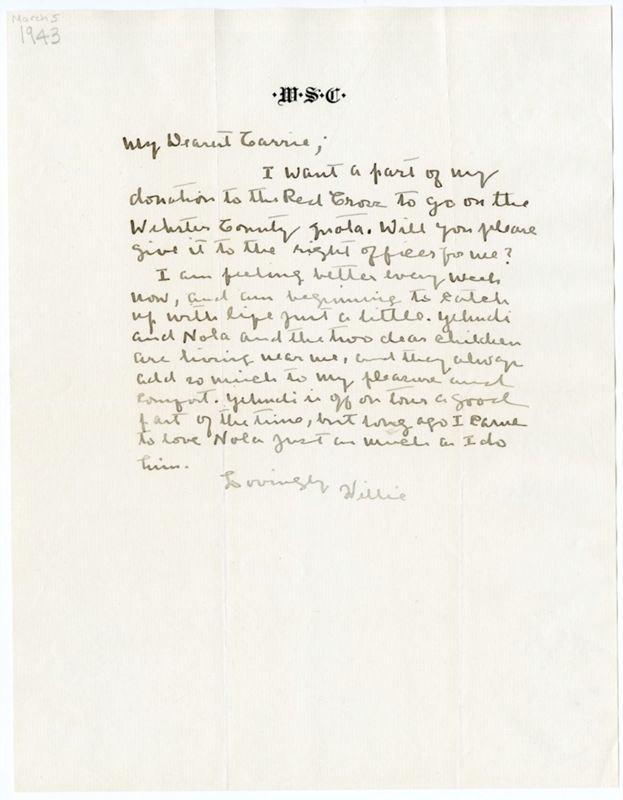 March 5
1943
·W·S·C·
My Dearest Carrie;
I want a part of my
donation to the Red Cross to go on the
Webster County quota. Will you please
give it to the right officer for me?
I am feeling better every week
now, and am beginning to catch
up with life just a little. Yehudi
and Nola and the two dear children
are living near me, and they always
add so much to my pleasure and
comfort. Yehudi is off on tour a good
part of the time, but long ago I came
to love Nola just as much as I do
him.
Lovingly Willie